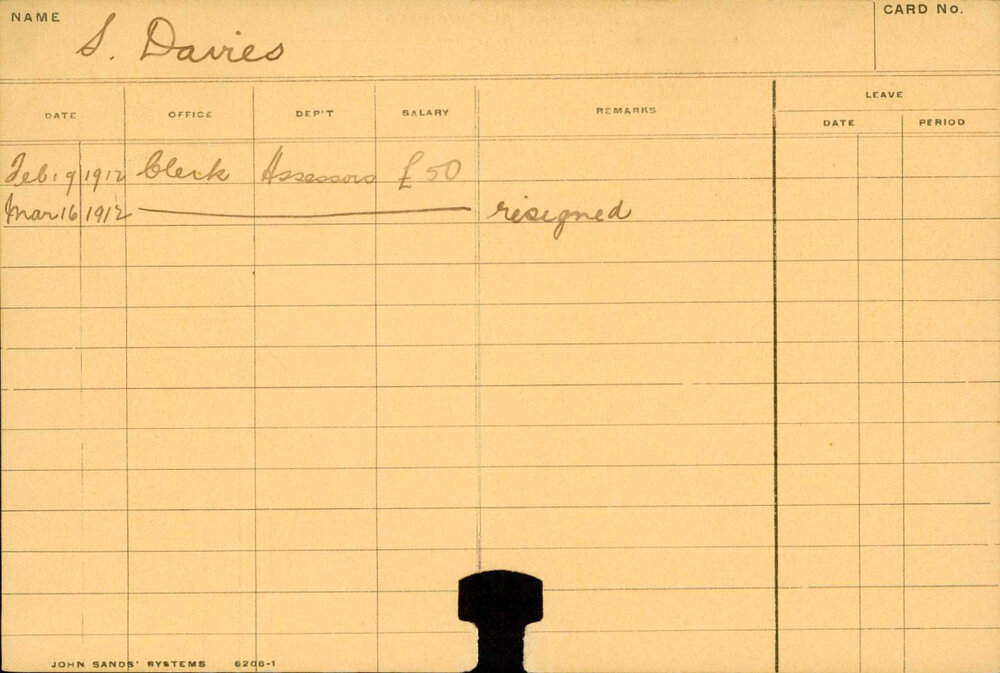 NAME
CARD No.
S. Davies
LEAVE
DATE OFFICE DEP'T SALARY REMARKS DATE PERIOD
Feb. 9 1912 Clerk Assessors £50
Mar 16 1912 resigned
JOHN SANDS' SYSTEMS 6206-1